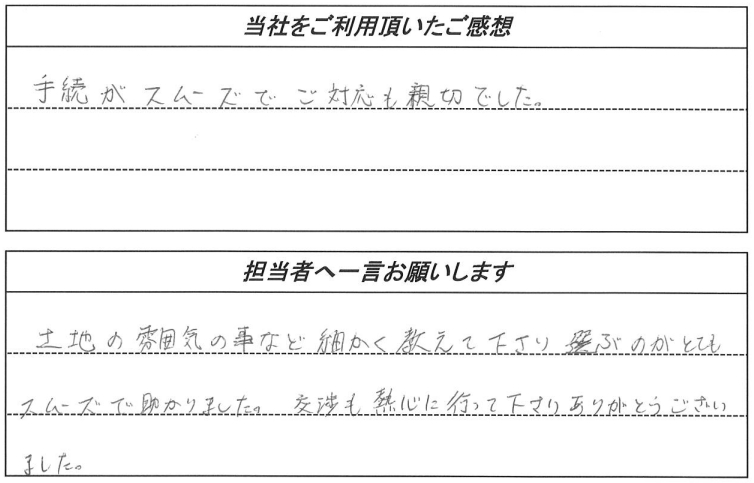 当社をご利用頂いたご感想
手続がスムーズでご対応も親切でした。
担当者へ一言お願いします
土地の雰囲気の事など細かく教えて下さり選ぶのがとても
スムーズで助かりました。交渉も熱心に行って下さりありがとうござい
ました。